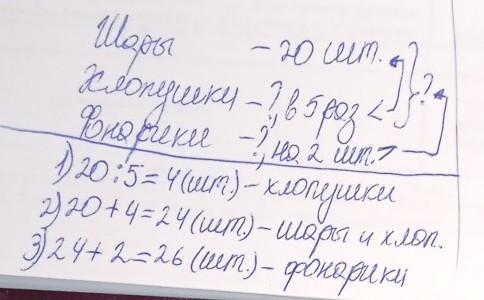 Шары – 20 шт. ?
Хлопушки – ?, в 5 раз <
Фонарики – ?, на 2 шт. >
1) 20 : 5 = 4 (шт.) – хлопушки
2) 20 + 4 = 24 (шт.) – шары и хлоп.
3) 24 + 2 = 26 (шт.) – фонарики